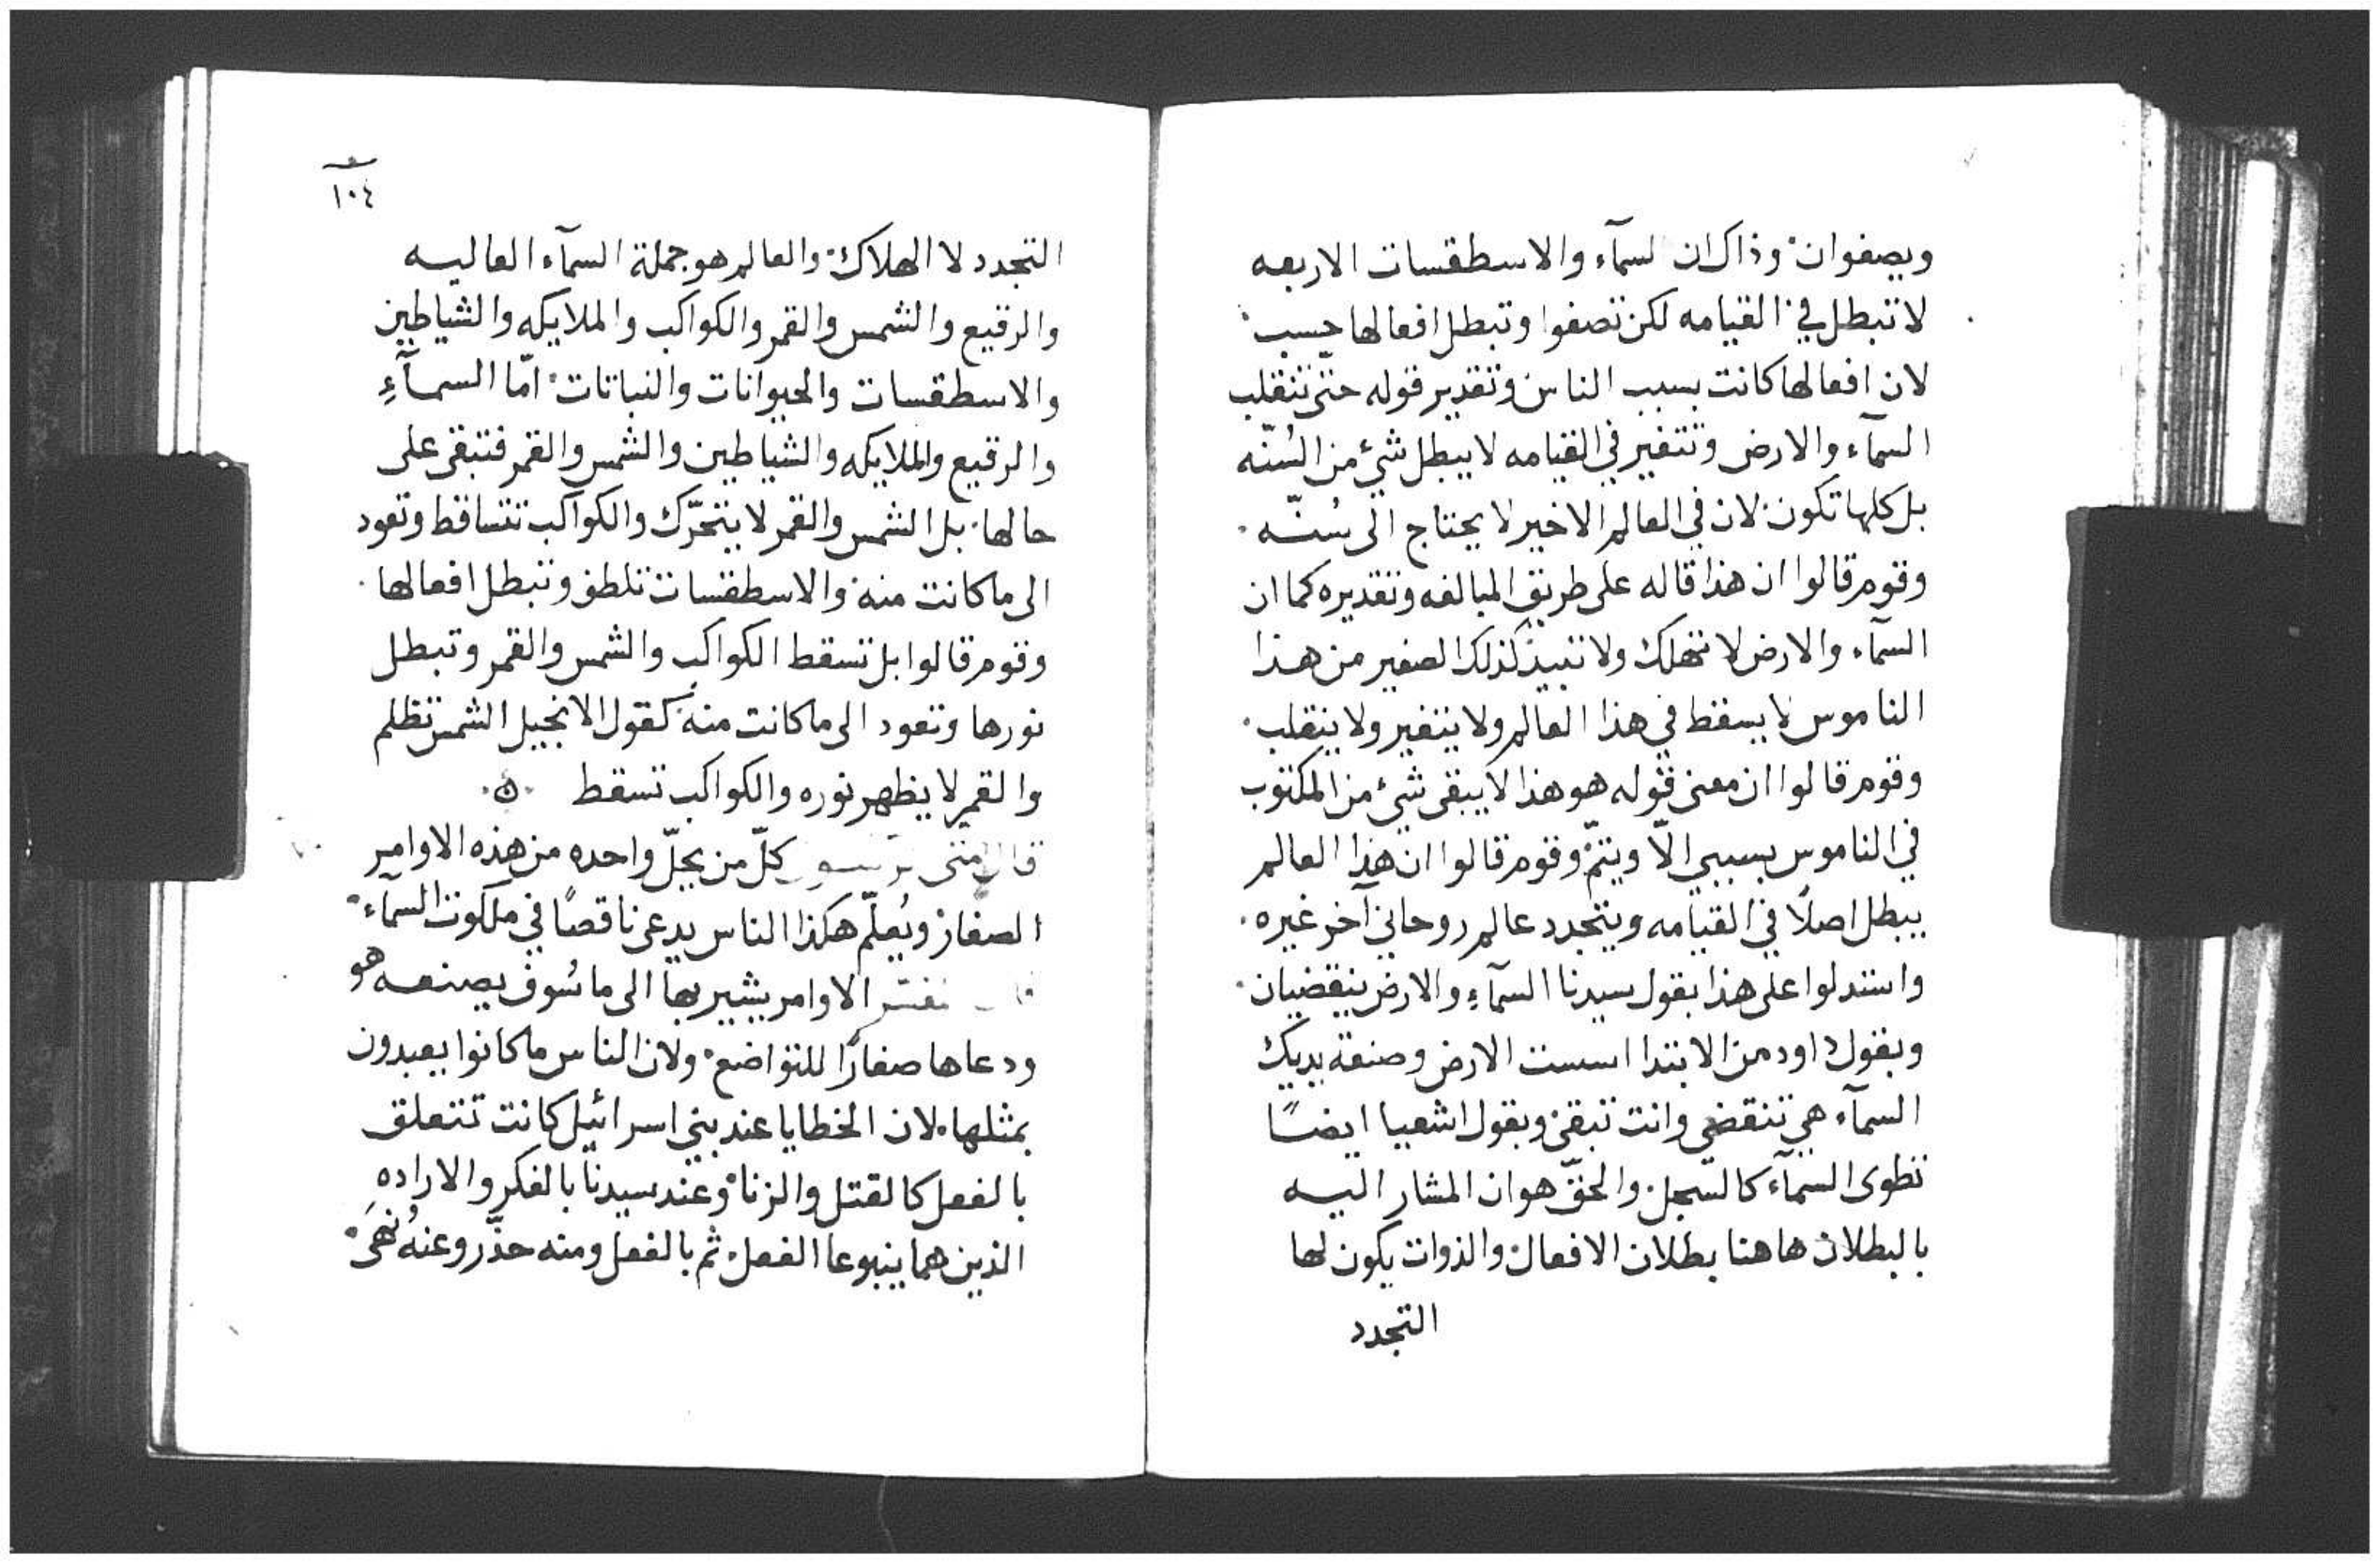 ويصفوان وذاك ان السمآء والاسطقسات الاربعه
لا تبطل في القيامه لكن تصفوا وتبطل افعالها حسب
لان افعالها كانت بسبب الناس وتقدير قوله حتّى تنقلب
السمآء والارض وتتغير في القيامه لا يبطل شئ من السُنّه
بل كلها تكون لان في العالم الاخير لا يحتاج الى سُنّه
وقوم قالوا ان هذا قاله على طريق المبالغه وتقديره كما ان
السمآء والارض لا تهلك ولا تبيد كذلك الصغير من هذا
الناموس لا يسقط في هذا العالم ولا يتغير ولا ينقلب
وقوم قالوا ان معنى قوله هو هذا لا يبقى شئ من المكتوب
في الناموس بسببي الّا ويتمّ وقوم قالوا ان هذا العالم
يبطل اصلًا في القيامه ويتجدد عالم روحاني آخر غيره
واستدلوا على هذا بقول سيدنا السمآء والارض ينقضيان
وبقول داود من الابتدا اسست الارض وصنعة يديك
السمآء هي تنقضي وانت تبقى وبقول اشعيا ايضًا
تطوى السمآء كالسّجل والحقّ هو ان المشار اليه
بالبطلان هاهنا بطلان الافعال والذوات يكون لها
التجدد
١٠٤
التجدد لا الهلاك والعالم هو جملة السمآء العاليه
والرقيع والشمس والقمر والكواكب والملايكه والشياطين
والاسطقسات والحيوانات والنباتات امّا السمآءِ
والرقيع والملايكه والشياطين والشمس والقمر فتبقى على
حالها بل الشمس والقمر لا يتحرّك والكواكب تتساقط وتعود
الى ما كانت منه والاسطقسات تلطف وتبطل افعالها
وقوم قالوا بل تسقط الكواكب والشمس والقمر وتبطل
نورها وتعود الى ما كانت منه كقول الانجيل الشمس تظلم
والقمر لا يظهر نوره والكواكب تسقط ٥
قال متى كلّ من يحلّ واحده من هذه الاوامر
الصغار ويُعلّم هكذا الناس يدعى ناقصًا في ملكوت السمآء
الاوامر يشير بها الى ما سُوف يصنعه هو
ودعاها صغارًا للتواضع ولان الناس ما كانوا يعبدون
بمثلها لان الخطايا عند بني اسرائيل كانت تتعلق
بالفعل كالقتل والزنا وعند سيدنا بالفكر والاراده
الذين هما ينبوعا الفعل ثم بالفعل ومنه حذّر وعنهُ نهَى